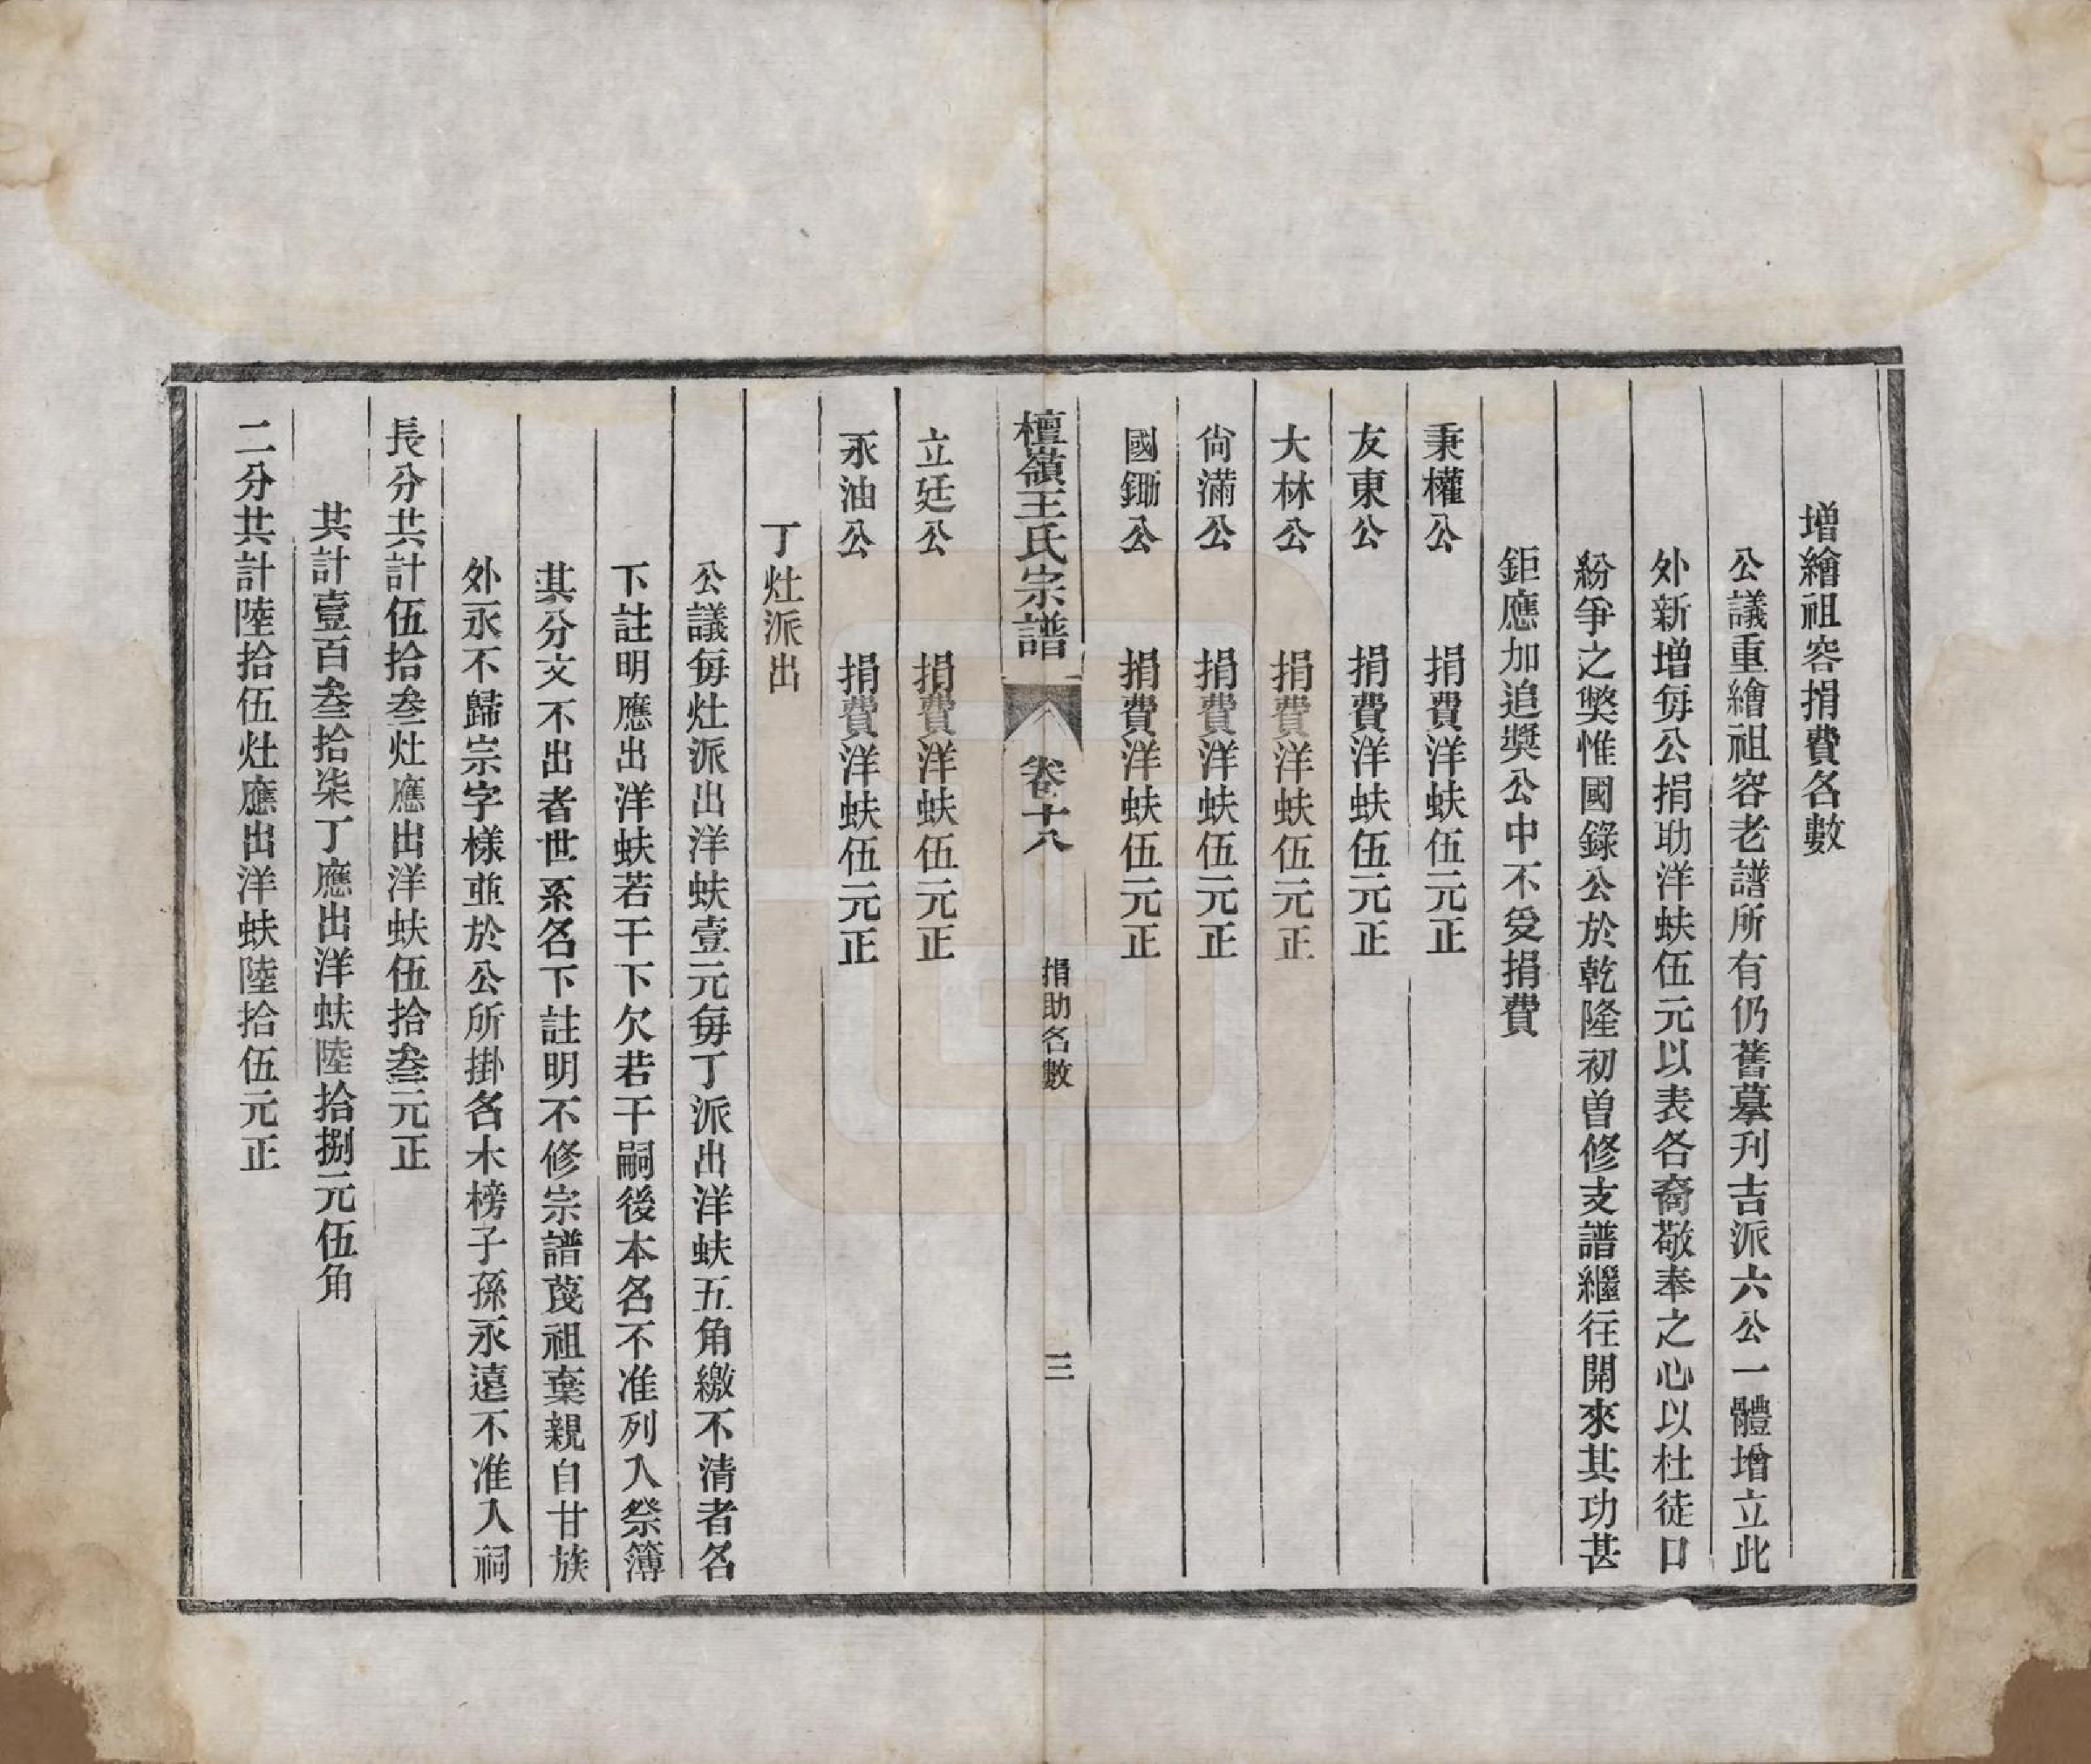 增繪祖容捐費名數
公議重繪祖容老譜所有仍舊墓刋吉派六公一體增立此
外新增每公捐助洋蚨伍元以表各裔敬奉之心以杜徒口
紛爭之獘惟國錄公於乾隆初曽修支譜繼徃開來其功甚
鉅應加追奬公中不受捐費
秉權公 捐費洋蚨伍元正
友東公 捐費洋蚨伍元正
大林公 捐費洋蚨伍元正
尙滿公 捐費洋蚨伍元正
國鋤公 捐費洋蚨伍元正
檀嶺王氏宗譜 卷十八 捐助名數 三
立廷公 捐費洋蚨伍元正
永油公 捐費洋蚨伍元正
丁灶派出
公議每灶派出洋蚨壹元每丁派出洋蚨五角繳不清者名
下註明應出洋蚨若干下欠若干嗣後本名不准列入祭簿
其分文不出者世系名下註明不修宗譜蔑祖棄親自甘族
外永不歸宗字樣並於公所掛名木榜子孫永遠不准入祠
長分共計伍拾叁灶應出洋蚨伍拾叁元正
其計壹百叁拾柒丁應出洋蚨陸拾捌元伍角
二分共計陸拾伍灶應出洋蚨陸拾伍元正